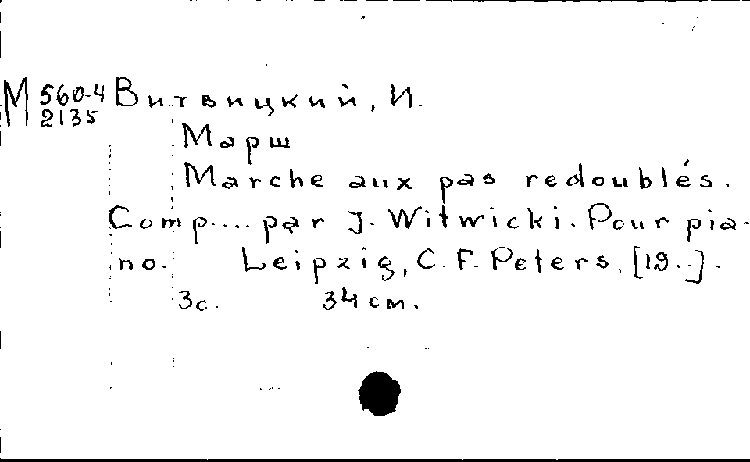 М 560-4 Витвицкий, И.
2135
Марш
Marche aux pas redoublés.
Comp.... par J. Witwicki. Pour pia-
no. Leipzig, C. F. Peters, [19..].
3с. 34 см.